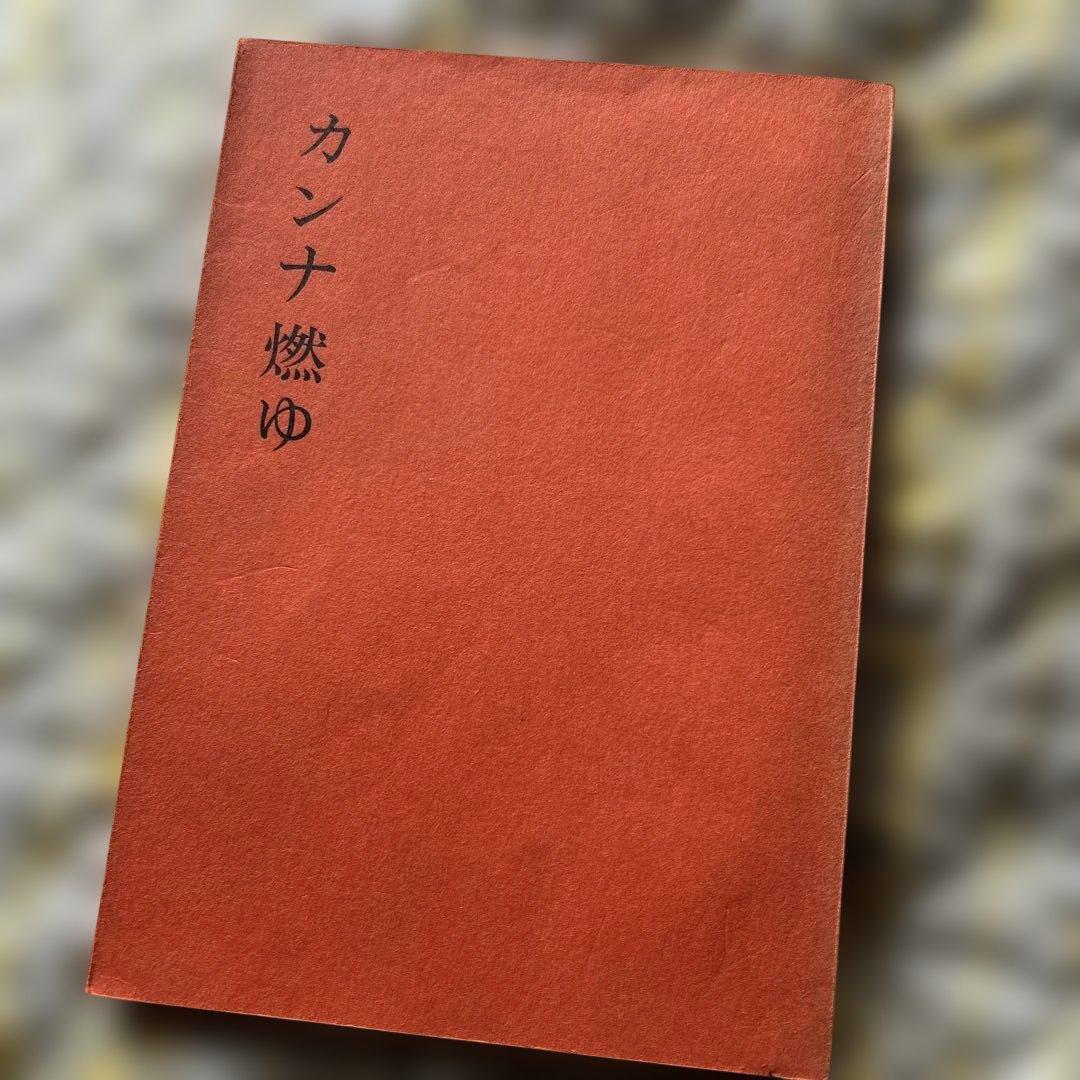 カンナ燃ゆ